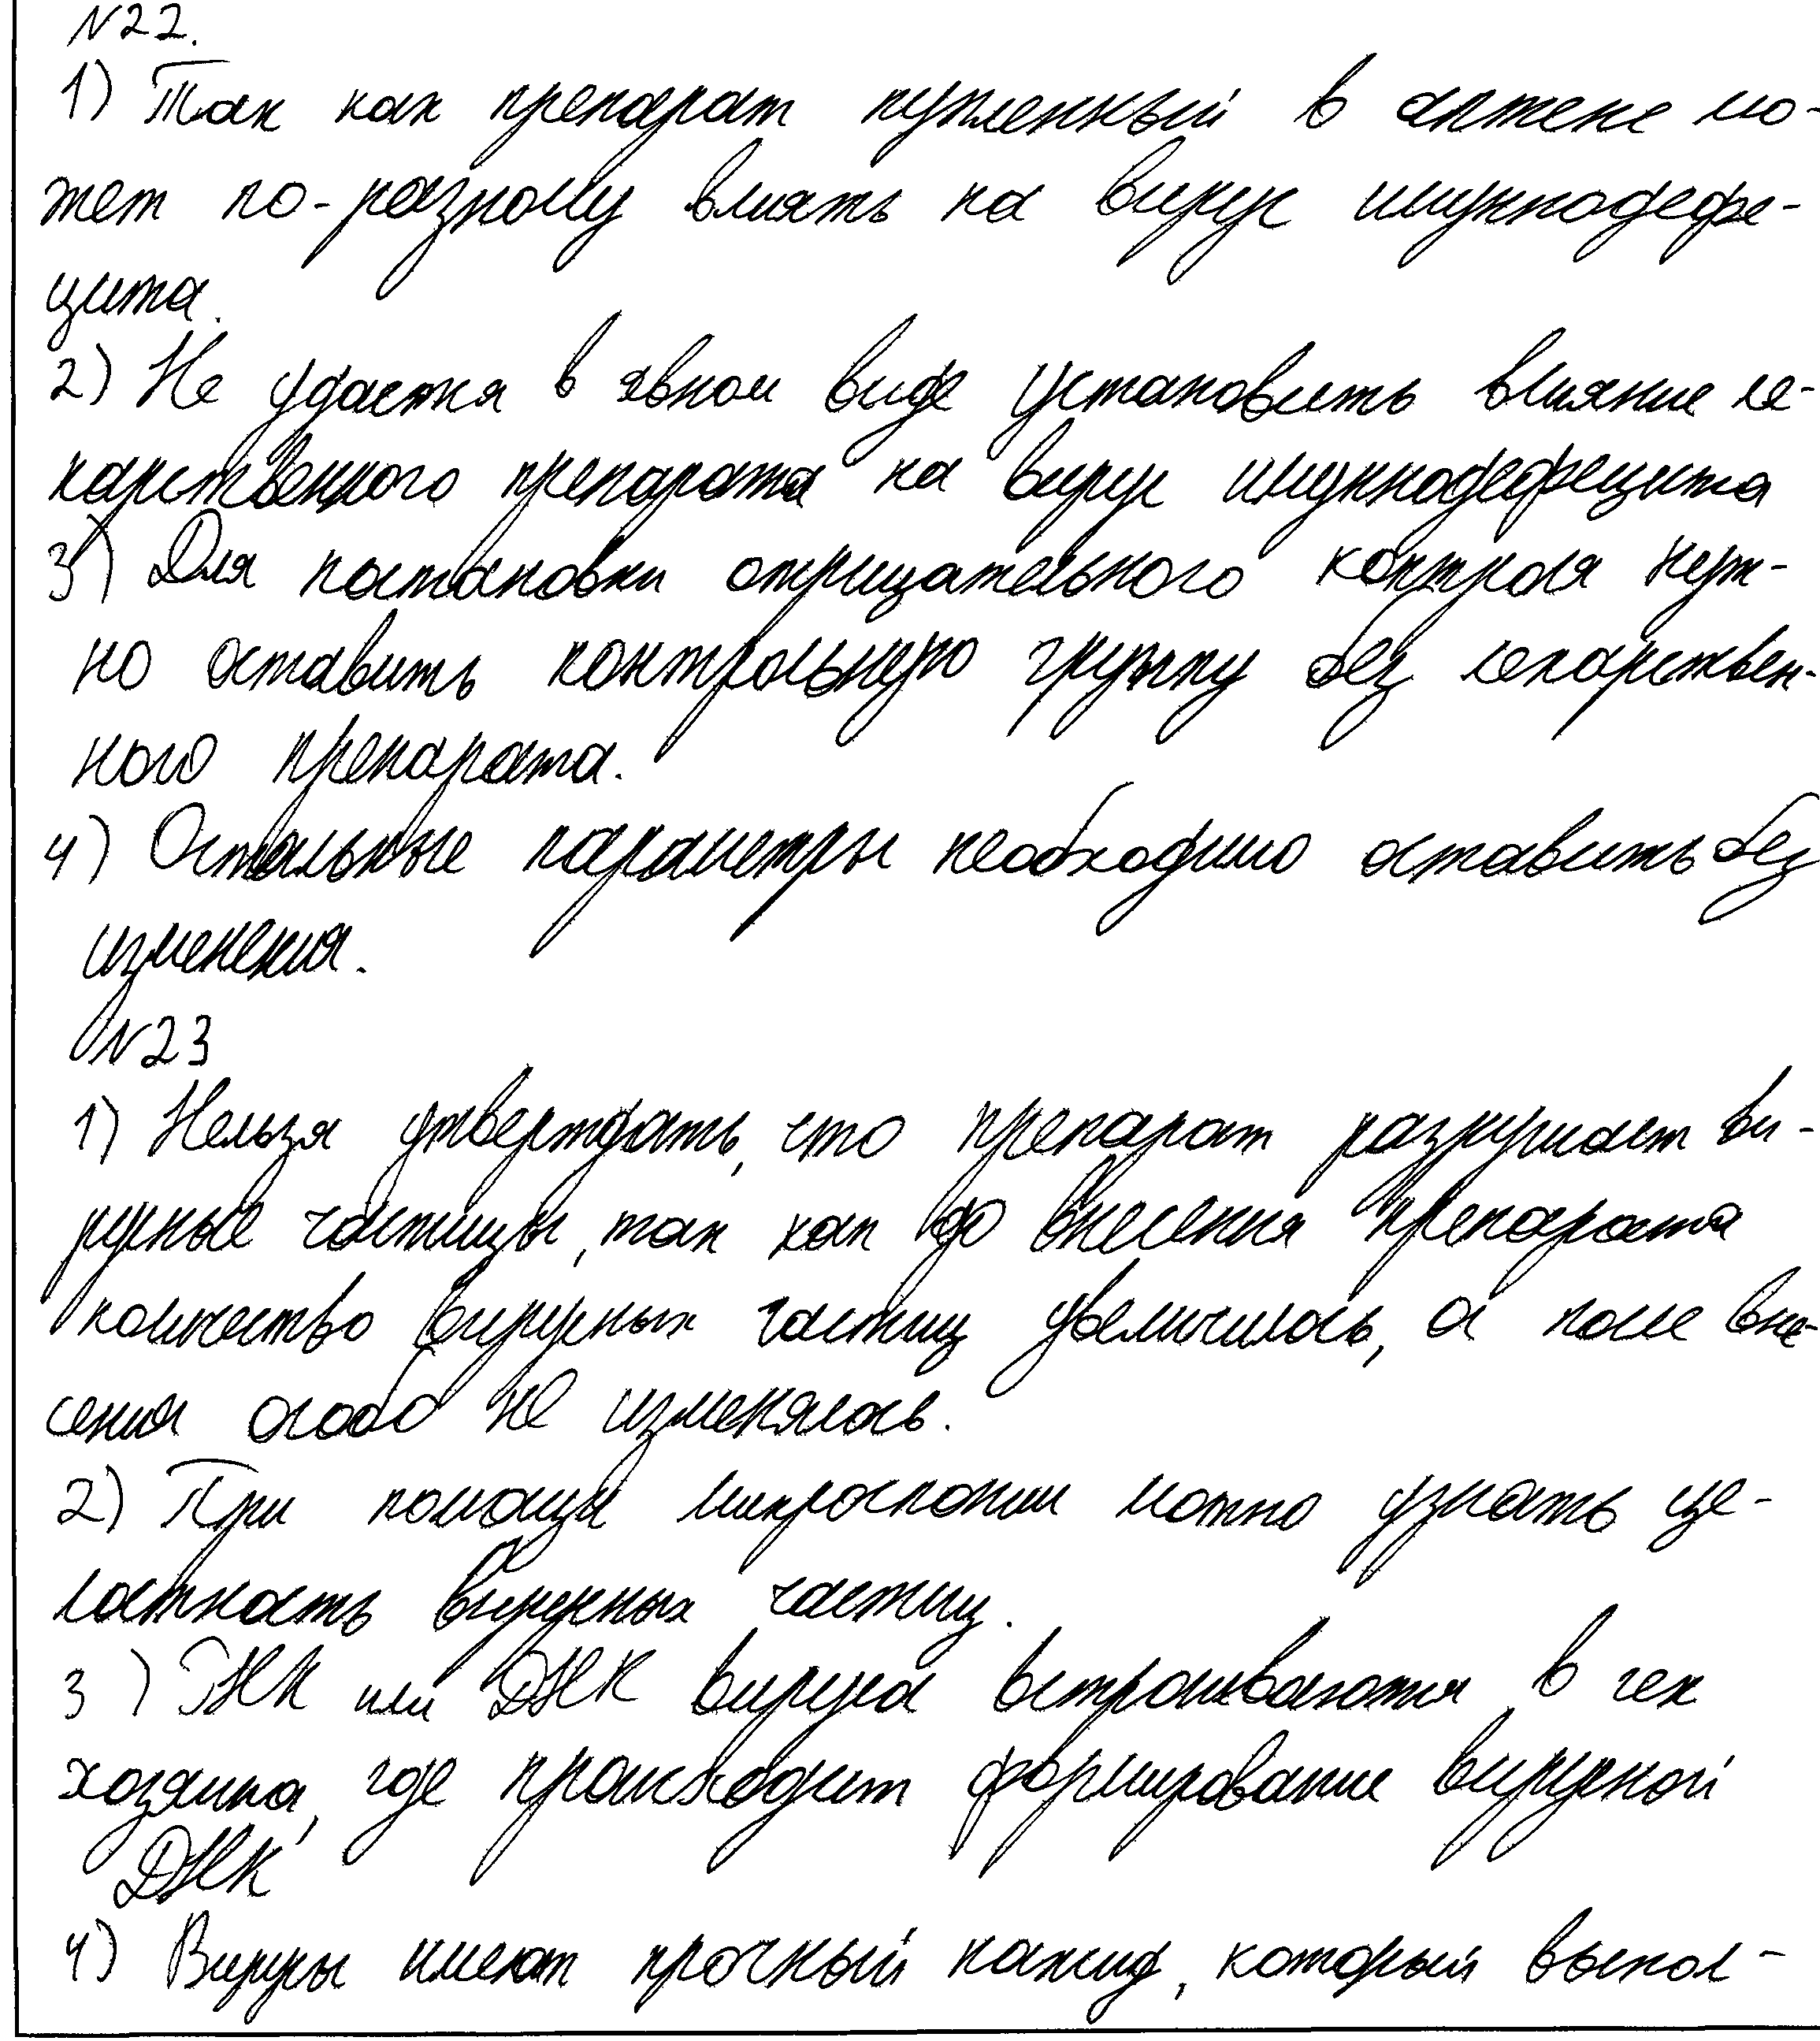 №22.
1) Так как препарат купленный в аптеке мо-
жет по-разному влиять на вирус имуннодефе-
цита.
2) Не удастся в явном виде установить влияние ле-
карственного препарата на вирус имуннодефецита
3) Для постановки отрицательного контроля нуж-
но оставить контрольную группу без лекарствен-
ного препарата.
4) Остальные параметры необходимо оставить без
изменения.
№23
1) Нельзя утверждать, что препарат разрушает ви-
русные частицы, так как до внесения препарата
количество вирусных частиц увеличилось, а после вне-
сения особо не изменялось.
2) При помощи микроскопии можно узнать це-
лостность вирусных частиц.
3) РНК или ДНК вируса встраиваются в ген
хозяина, где происходит формирование вирусной
ДНК
4) Вирусы имеют прочный капсид, который выпол-